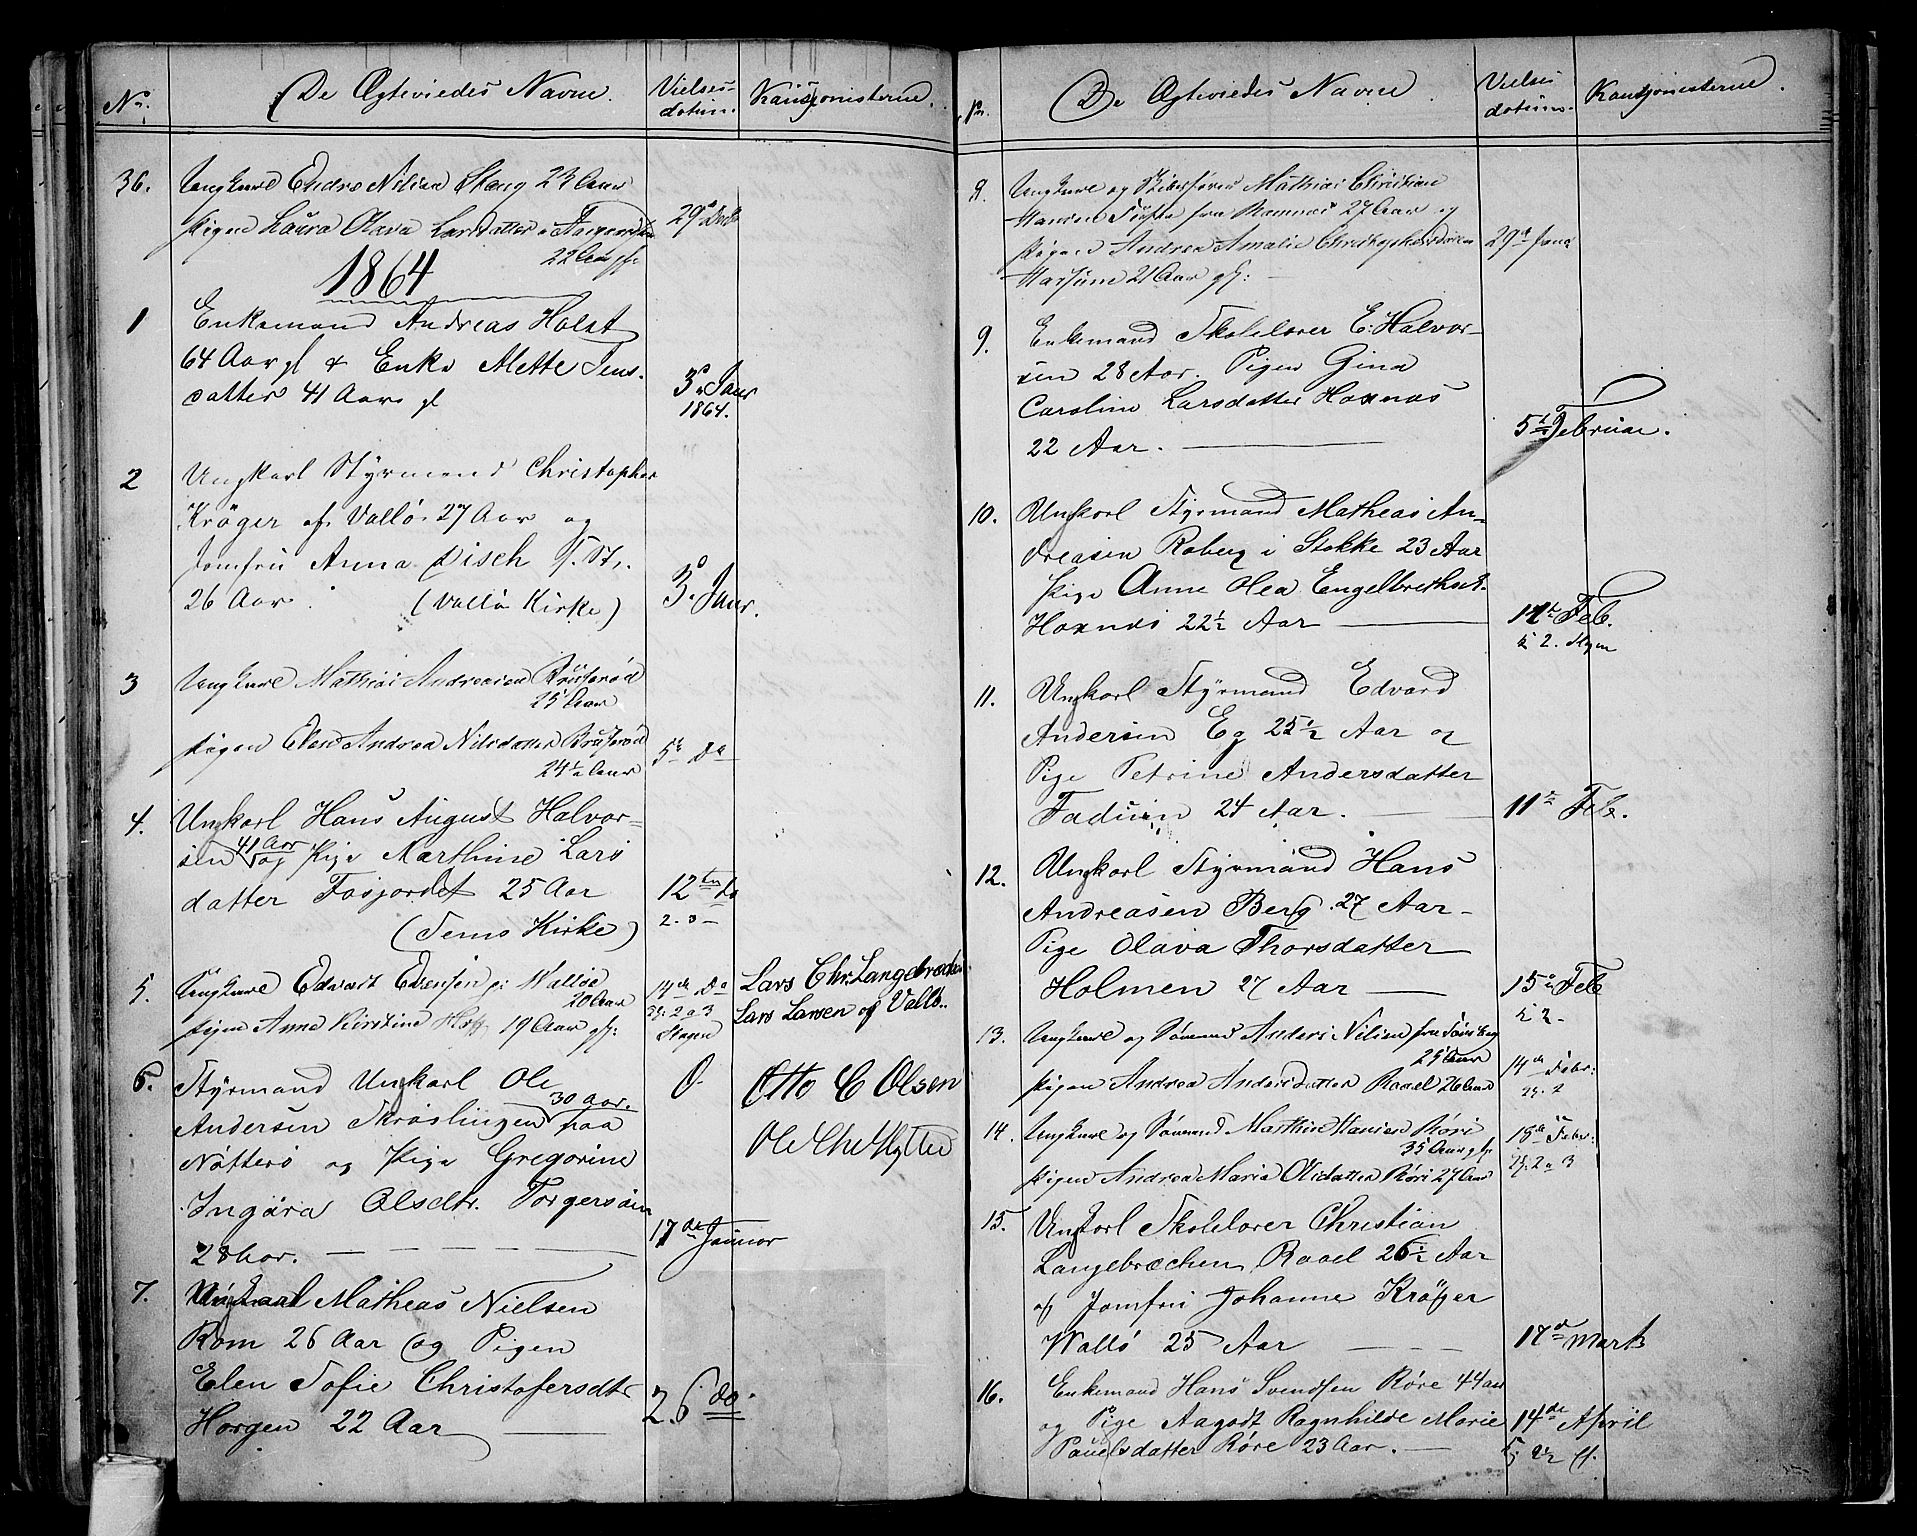 No. De Ægteviedes Navne. Vielses- Kautionisterne.
datum.
36. Ungkarl Endre Nilsen Stang 23 Aar
Pigen Laura Olava Larsdatter 29de Decb
22 Aar gl:
1864
1 Enkemand Andreas Holst
64 Aar gl & Enke Mette Jens-
datter 41 Aar gl 3de Janr
1864.
2 Ungkarl Styrmand Christopher
Krøger af Vallø 27 Aar og
Jomfru Anna Disch
26 Aar (Vallø Kirke) 3de Janr.
3 Ungkarl Mathias Andreasen Brusterød
25 Aar
Pigen Elen Andrea Nilsdatter Brusterød
24½ Aar 5te Do
4. Ungkarl Hans August Halvor-
sen 41 Aar og Pige Karthine Lars
datter Fosjordet 25 Aar 12te do
(Sems Kirke) 2. 3
5. Ungkarl Edvart Evensen Walløe
20 Aar 14de Do Lars Chr. Langebræchen
Pigen Anne Kirstine 19 Aar gl: Lars Larsen af Vallø..
6. Styrmand Ungkarl Ole O. Otto C Olsen
30 Aar.
Andersen Skrøslingen paa
Nøtterø og Pige Gregorine Ole Chr Hytten
Ingøra Olsdtr. Torgersøen
28 Aar. 17de Januar
7. Ungkarl Matheas Nielsen
Rom 26 Aar og Pigen
Elen Sofie Christofersdtr
Horgen 22 Aar 26 do
No. De Ægteviedes Navne. Vielses Kautionisterne.
datum.
8. Ungkarl og Skibsfører Mathias Christian
Hansen Tofte fra Ramnæs 27 Aar og
Pigen Andrea Amalie Christophersdatter 29de Janr
21 Aar gl:
9. Enkemand Skolelærer E: Halvor-
sen 28 Aar. Pigen Gina
Caroline Larsdatter Hoxnæs
22 Aar. 5te Februar.
10. Ungkarl Styrmand Matheas An-
dreasen Roberg i Stokke 23 Aar
Pige Anne Olea Engelbrethsd.
Hoxnæs 22½ Aar 11te Feb.
11. Ungkarl Styrmand Edvard
Andersen Eg 25½ Aar og
Pige Petrine Andersdatter
Faduin 24 Aar. 11te Feb.
12. Ungkarl Styrmand Hans
Andreasen Berg 27 Aar
Pige Olava Thorsdatter
Holmen 27 Aar 15de Feb
13. Ungkarl og Sømand Anders Nilsen fra Tønsberg
25 Aar 14de Febr:
Pigen Andrea Andersdatter Raael 26 Aar
14. Ungkarl og Sømand Mathis Hansen Røri
35 Aar gl: 18de Febr:
Pigen Andrea Maria Olsdatter Røri 27 Aar
15. Ungkarl Skolelærer Christian
Langebræchen Raael 26½ Aar
og Jomfru Johanne Krøger
Wallø 25 Aar 17de Marts
16. Enkemand Hans Svendsen Røre 44 aar
og Pige Aagodt Ragnhilde Marie 14de April
Pauelsdatter Røre 23 Aar.